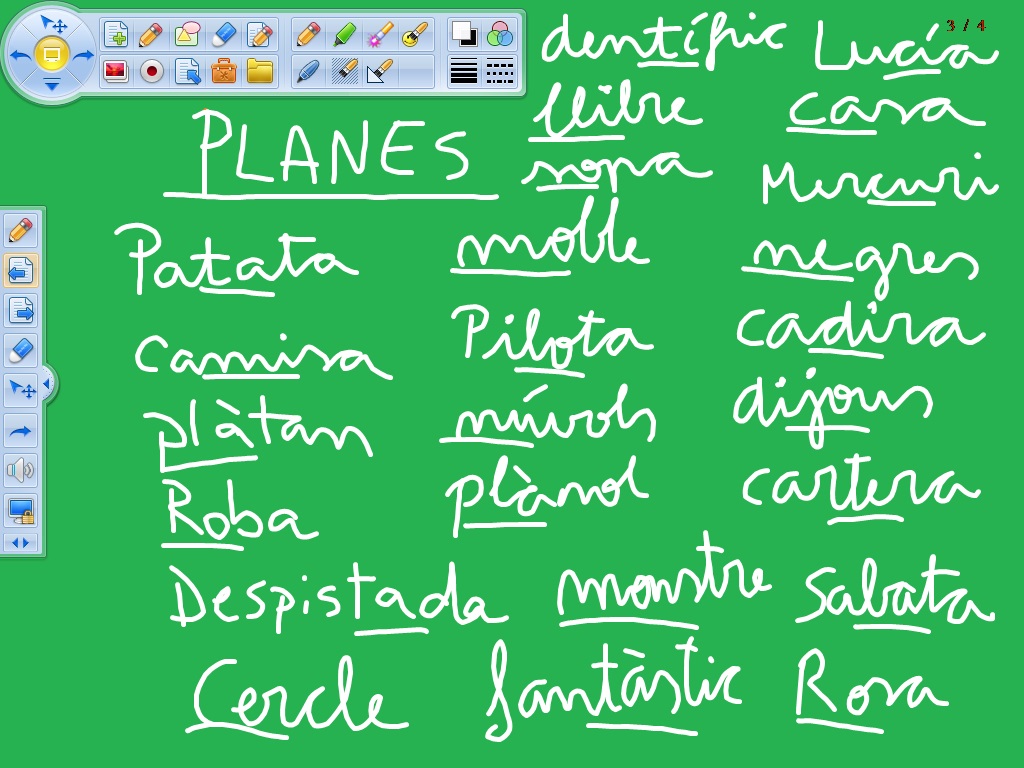 3 / 4
dentífric Lucía
llibre casa
PLANES sopa Mercuri
Patata moble negres
Camisa Pilota cadira
plàtan núvols dijous
Roba plànol cartera
Despistada monstre sabata
Cercle fantàstic Rosa